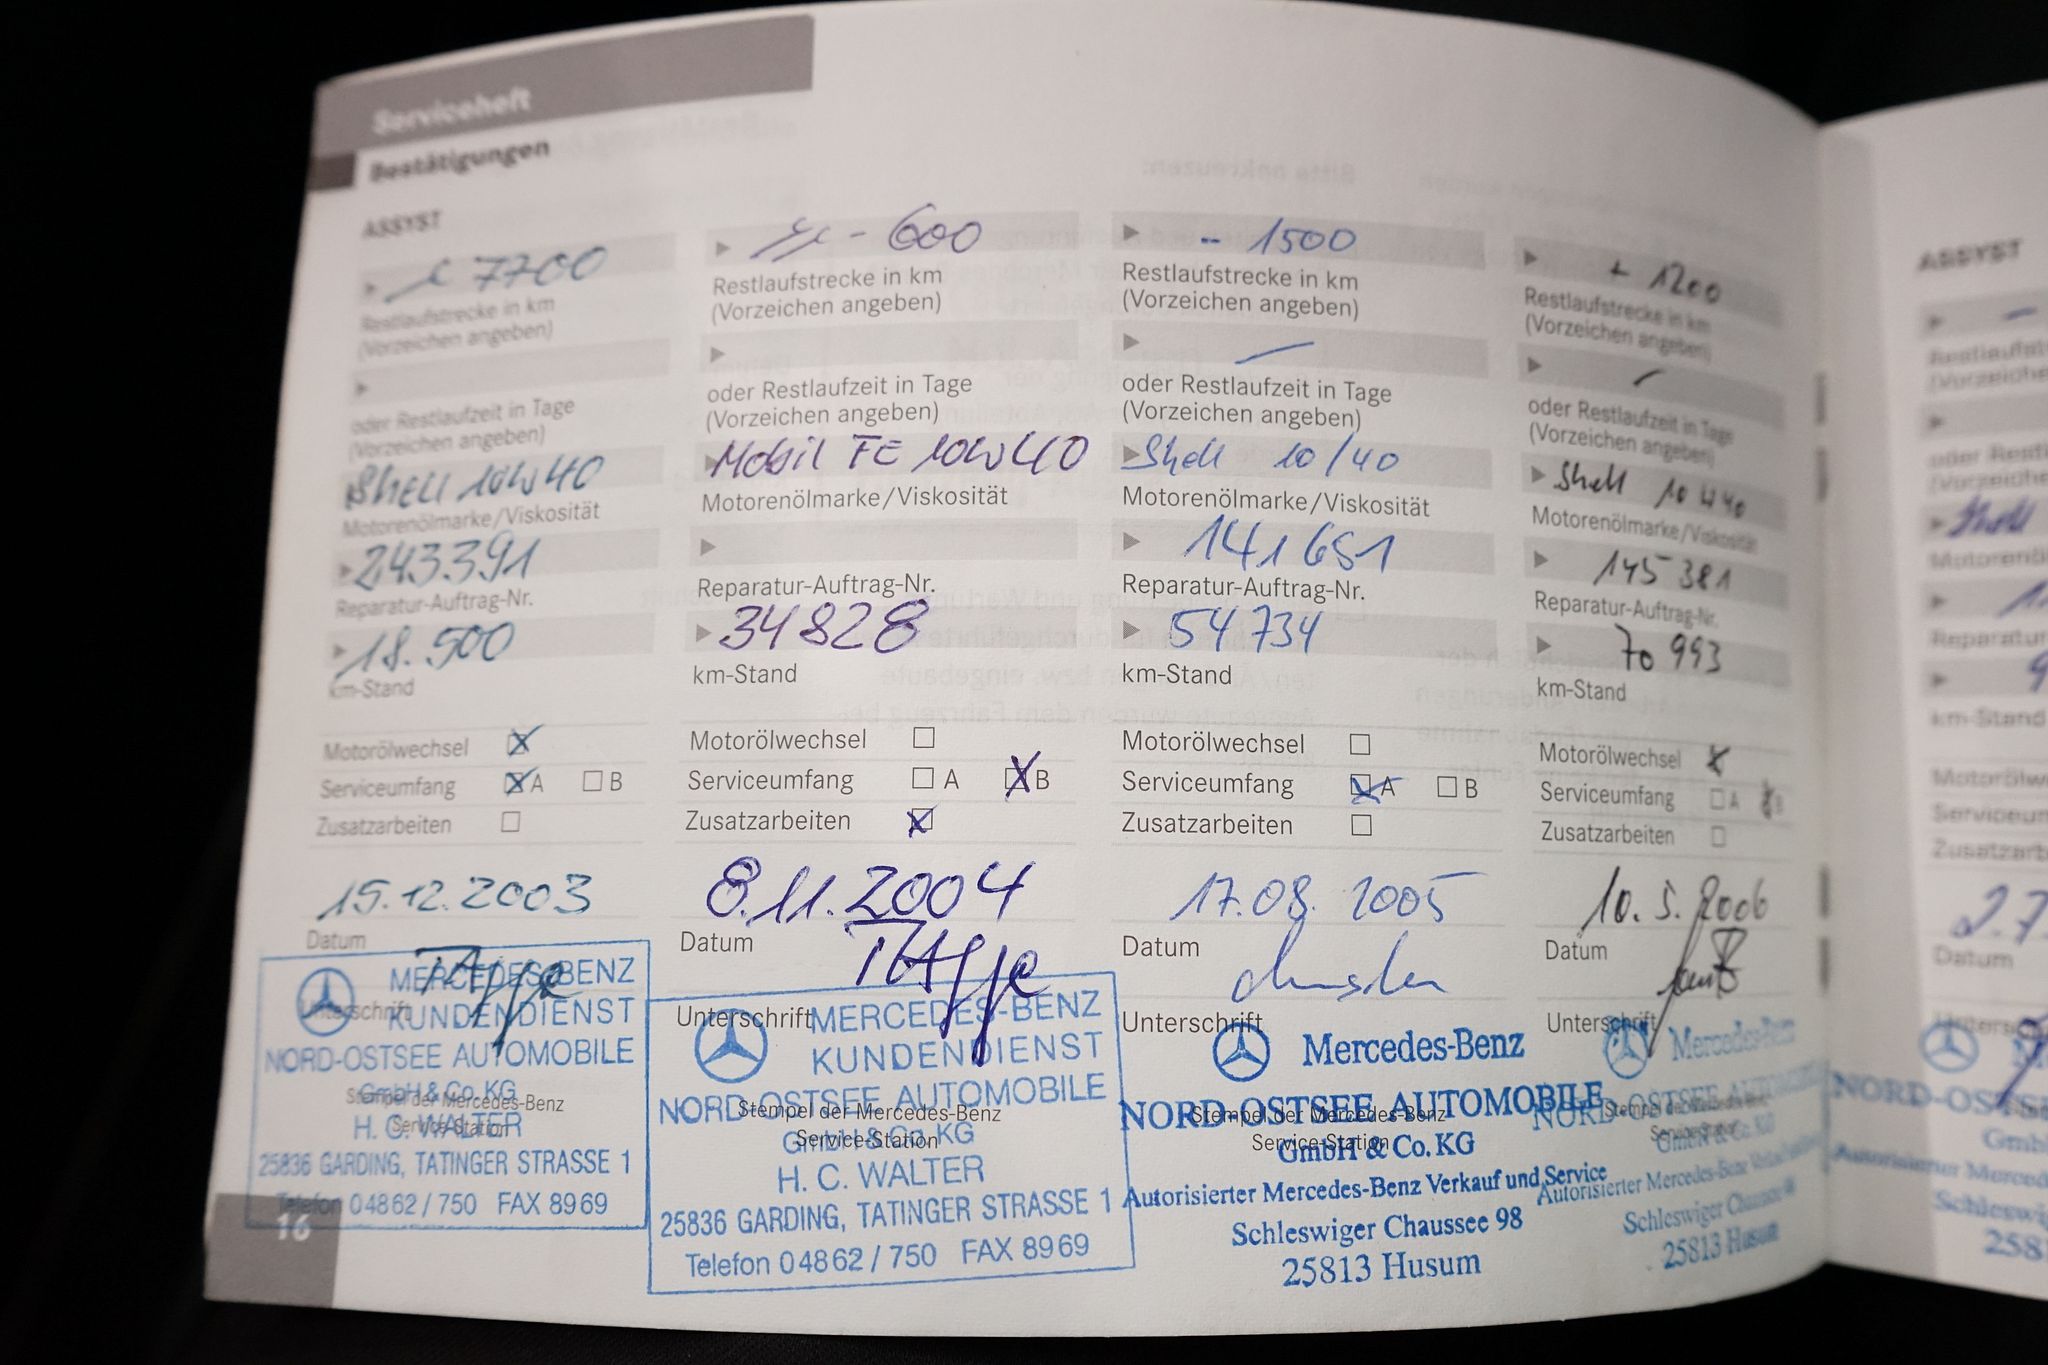 Serviceheft
Bestätigungen
ASSYST
7700
Restlaufstrecke in km
(Vorzeichen angeben)
oder Restlaufzeit in Tage
(Vorzeichen angeben)
Shell 10W40
Motorenölmarke/Viskosität
243.391
Reparatur-Auftrag-Nr.
18.500
km-Stand
Motorölwechsel
Serviceumfang A B
Zusatzarbeiten
15.12.2003
Datum
Unterschrift
MERCEDES-BENZ
KUNDENDIENST
NORD-OSTSEE AUTOMOBILE
GmbH & Co. KG
Stempel der Mercedes-Benz
Service-Station
H. C. WALTER
25836 GARDING, TATINGER STRASSE 1
Telefon 04862/750 FAX 8969
16
- 600
Restlaufstrecke in km
(Vorzeichen angeben)
oder Restlaufzeit in Tage
(Vorzeichen angeben)
Mobil FE 10W40
Motorenölmarke/Viskosität
Reparatur-Auftrag-Nr.
34828
km-Stand
Motorölwechsel
Serviceumfang A B
Zusatzarbeiten
8.11.2004
Datum
Unterschrift
MERCEDES-BENZ
KUNDENDIENST
NORD-OSTSEE AUTOMOBILE
Stempel der Mercedes-Benz
Service-Station
GmbH & Co. KG
H. C. WALTER
25836 GARDING, TATINGER STRASSE 1
Telefon 04862/750 FAX 8969
-- 1500
Restlaufstrecke in km
(Vorzeichen angeben)
oder Restlaufzeit in Tage
(Vorzeichen angeben)
Shell 10/40
Motorenölmarke/Viskosität
141651
Reparatur-Auftrag-Nr.
54734
km-Stand
Motorölwechsel
Serviceumfang A B
Zusatzarbeiten
17.08.2005
Datum
Unterschrift
Mercedes-Benz
NORD-OSTSEE AUTOMOBILE
Stempel der Mercedes-Benz
Service-Station
GmbH & Co. KG
Autorisierter Mercedes-Benz Verkauf und Service
Schleswiger Chaussee 98
25813 Husum
+ 1200
Restlaufstrecke in km
(Vorzeichen angeben)
oder Restlaufzeit in Tage
(Vorzeichen angeben)
Shell 10W40
Motorenölmarke/Viskosität
145381
Reparatur-Auftrag-Nr.
70993
km-Stand
Motorölwechsel
Serviceumfang A B
Zusatzarbeiten
10.5.2006
Datum
Unterschrift
Mercedes-Benz
NORD-OSTSEE AUTOMOBILE
Stempel der Mercedes-Benz
GmbH & Co. KG
Autorisierter Mercedes-Benz
Schleswiger Chaussee 98
25813 Husum
ASSYST
Shell
km-Stand
2.7
Datum